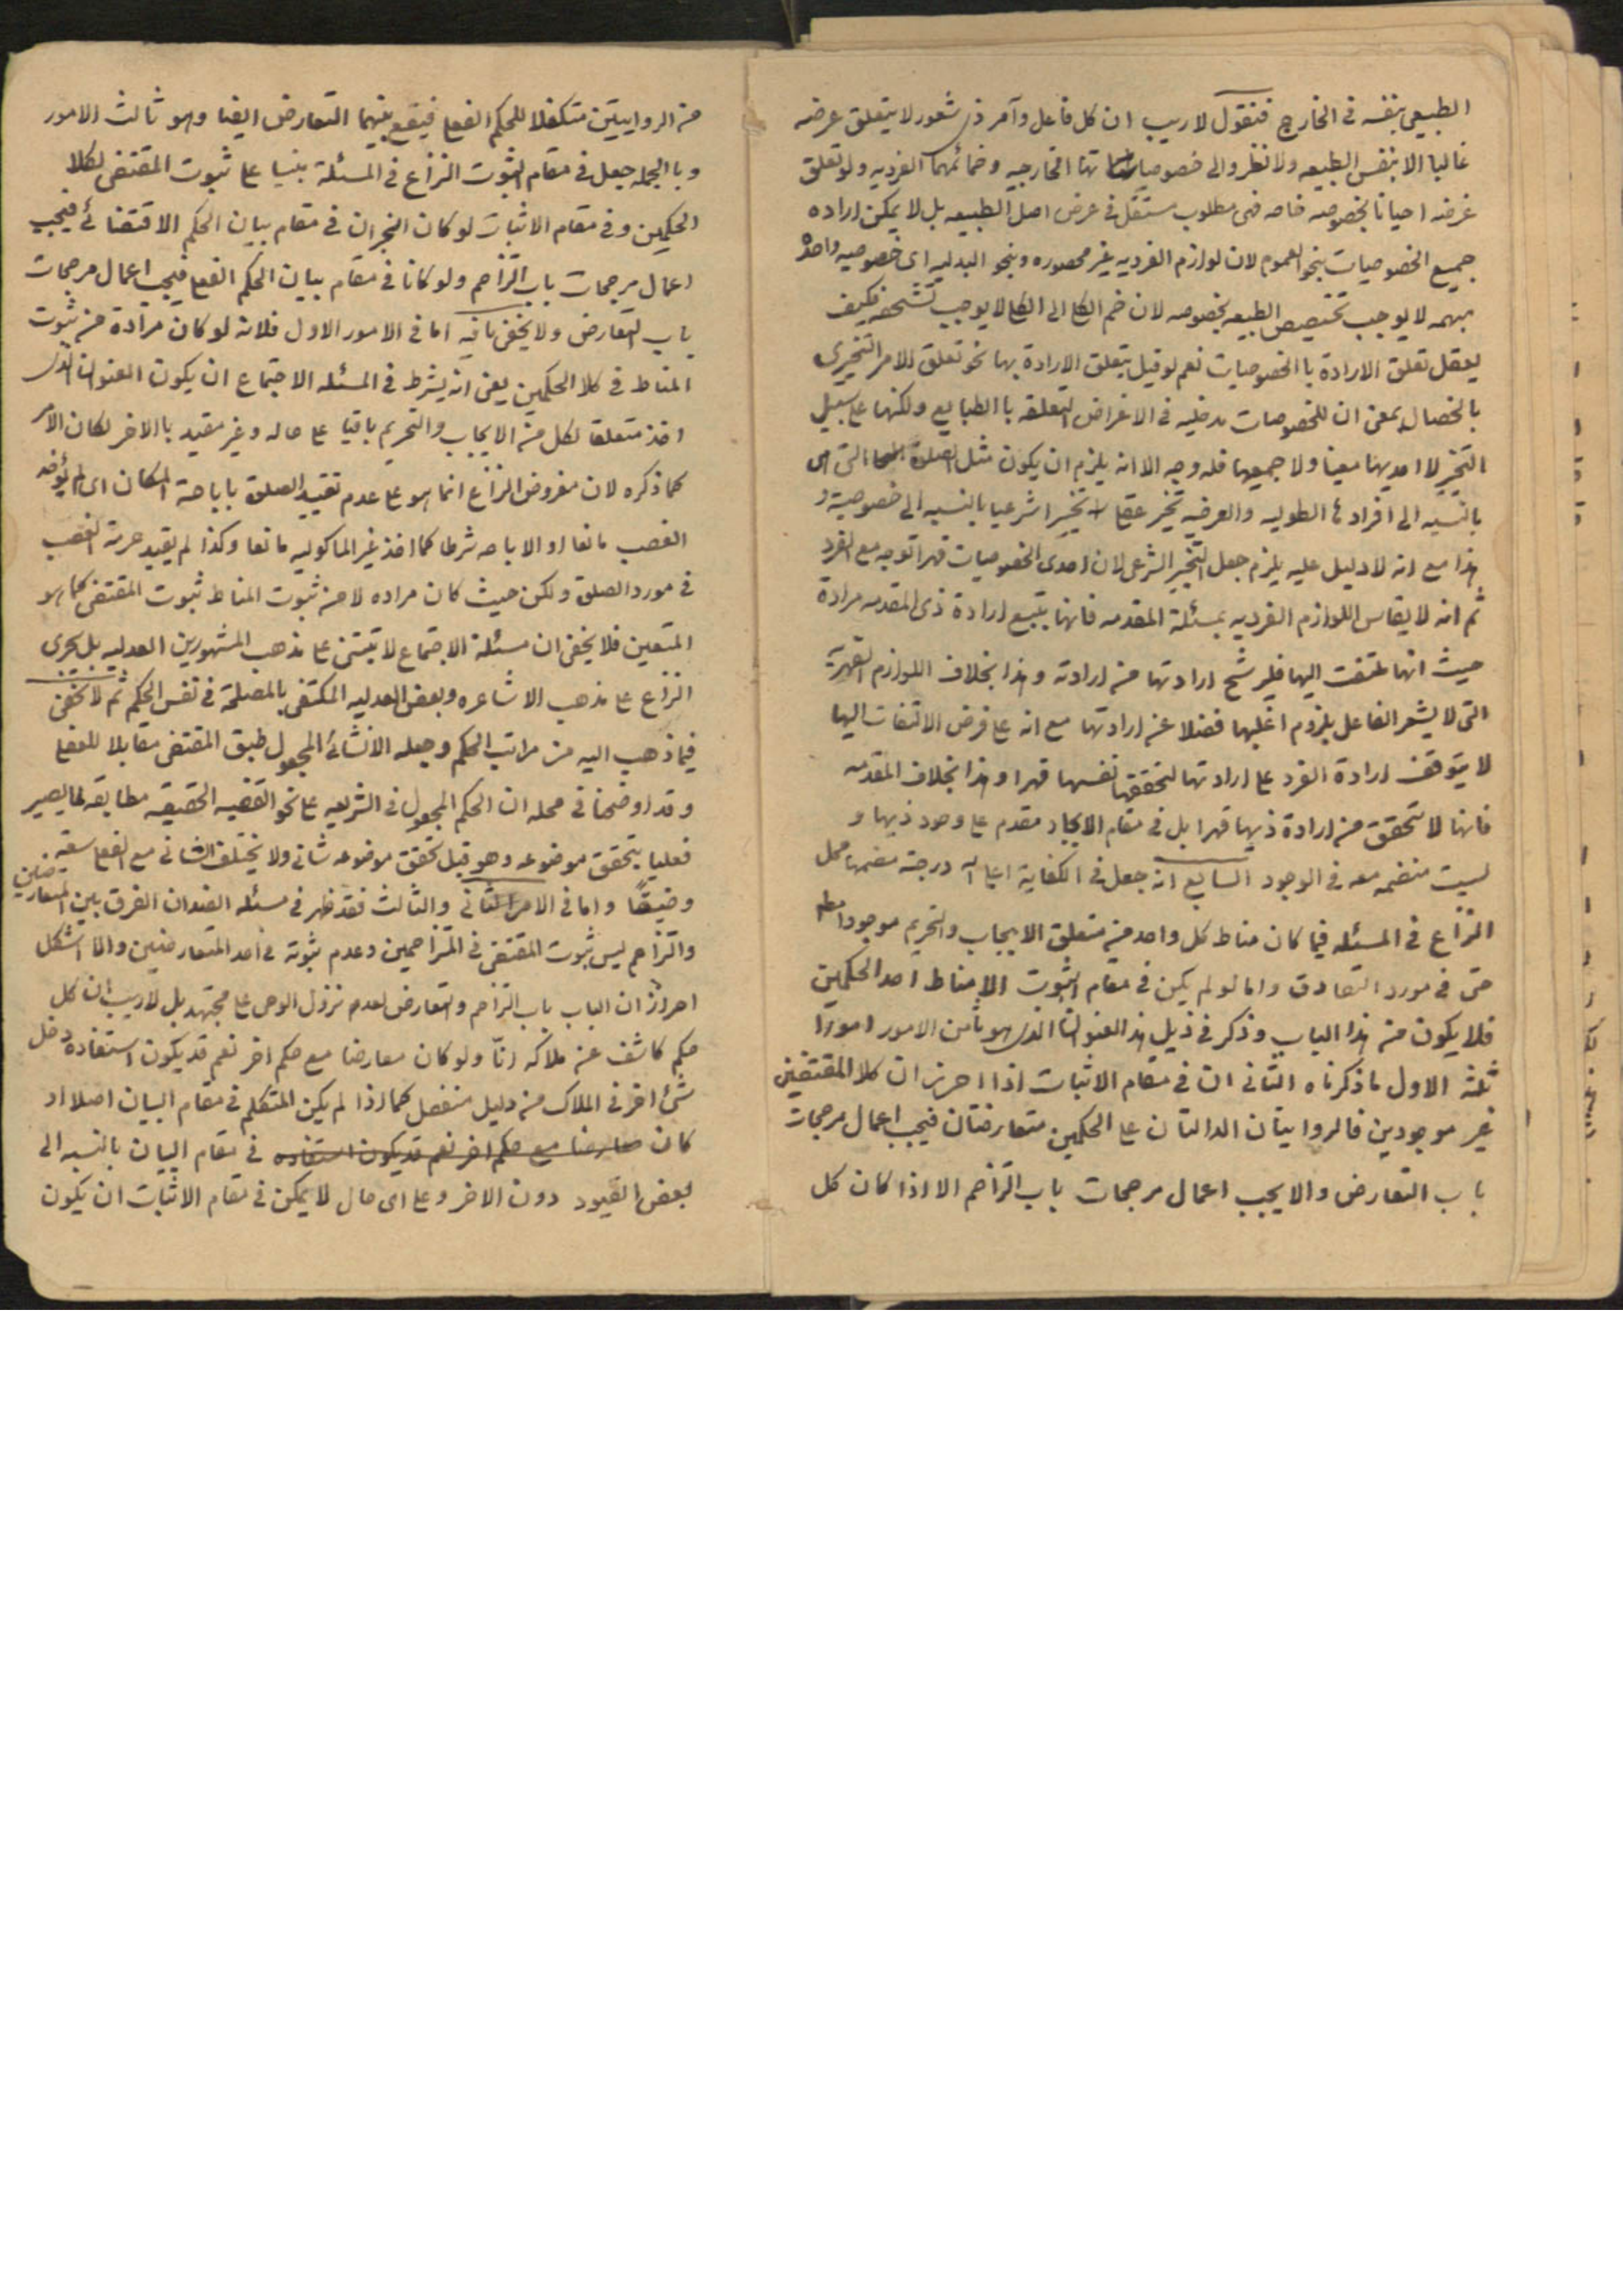 الطبيعى بنفسه فى الخارج فنقول لا ريب ان كل فاعل وآمر ذى شعور لا يتعلق غرضه
غالبا الا بنفس الطبيعه ولا نظر والى خصوصياتها الخارجيه وضمائمها الفرديه ولو تعلق
غرضه احيانا بخصوصيه خاصه فهى مطلوب مستقل فى عرض اصل الطبيعه بل لا يمكن اراده
جميع الخصوصيات بنحو العموم لان لوازم الفرديه غير محصوره وبنحو البدليه اى خصوصيه واحدة
مبهمه لا يوجب تخصيص الطبيعه بخصوصه لان ضم الكلى الى الكلى لا يوجب تشخصه فكيف
يعقل تعلق الارادة باالخصوصيات نعم لو قيل بتعلق الارادة بها نحو تعلق الامر التخييرى
بالخصال بمعنى ان للخصوصات مدخليه فى الاغراض المتعلقه باالطبايع ولكنها على سبيل
التخيير لا احديهما معينا ولا جميعها فله وجه الا انه يلزم ان يكون مثل الصلوة التى هى
بالنسبه الى افرادها الطوليه والعرضيه تخيير عقلى تخييرا شرعيا بالنسبه الى خصوصية و
هذا مع انه لا دليل عليه يلزم جعل التخيير الشرعى لان احدى الخصوصيات قهرا توجد مع الفرد
ثم انه لا يقاس اللوازم الفرديه بمسئلة المقدمه فانها بتبع ارادة ذى المقدمه مرادة
حيث انها ملتفت اليها فليرشح ارادتها من ارادته وهذا بخلاف اللوازم القهرية
التى لا يشعر الفاعل بلزوم اغلبها فضلا عن ارادتها مع انه على فرض الالتفات اليها
لا يتوقف ارادة الفرد على ارادتها لتحققها نفسها قهرا وهذا بخلاف المقدمه
فانها لا تتحقق من ارادة ذيها قهرا بل فى مقام الايجاد مقدم على وجود ذيها و
ليست منضمه معه فى الوجود السابع انه جعل فى الكفاية اعلى الله درجة مصنفها محل
النزاع فى المسئله فيما كان مناط كل واحد من متعلق الايجاب والتحريم موجودا مطلقا
حتى فى مورد التصادق واما لو لم يكن فى مقام الثبوت الا مناط احد الحكمين
فلا يكون من هذا الباب وذكر فى ذيل هذا العنوان الذى هو ثامن الامور امورا
ثلثة الاول ما ذكرناه الثانى ان فى مقام الاثبات اذا احرز ان كلا المقتضيين
غير موجودين فالروايتان الدالتان على الحكمين متعارضتان فيجب اعمال مرجحات
باب التعارض والا يجب اعمال مرجحات باب التزاحم الا اذا كان كل
من الروايتين متكفلا للحكم الفعلى فيقع بينهما التعارض ايضا وهو ثالث الامور
وباالجمله جعل فى مقام الثبوت النزاع فى المسئلة مبنيا على ثبوت المقتضى لكلا
الحكمين وفى مقام الاثبات لو كان الخبران فى مقام بيان الحكم الاقتضائى فيجب
اعمال مرجحات باب التزاحم ولو كانا فى مقام بيان الحكم الفعلى فيجب اعمال مرجحات
باب التعارض ولا يخفى ما فيه اما فى الامور الاول فلانه لو كان مراده من ثبوت
المناط فى كلا الحكمين يعنى انه يشترط فى المسئله الاجتماع ان يكون العنوان الذى
اخذ متعلقا لكل من الايجاب والتحريم باقيا على حاله وغير مقيد باالاخر لكان الامر
كما ذكره لان مفروض النزاع انما هو على عدم تقييد الصلوة باباحة المكان اى لم يؤخذ
الغصب مانعا او الاباحه شرطا كما اخذ غير الماكوليه مانعا وكذا لم يقيد حرمة الغصب
فى مورد الصلوة ولكن حيث كان مراده لا من ثبوت المناط ثبوت المقتضى كما هو
المتعين فلا يخفى ان مسئلة الاجتماع لا تبتنى على مذهب المشهورين العدليه بل يجرى
النزاع على مذهب الاشاعره وبعض العدليه المكتفى بالمصلحة فى نفس الحكم ثم لا يخفى
فيما ذهب اليه من مراتب الحكم وجعله الانشائى المجعول طبق المقتضى مقابلا للفعلى
وقد اوضحنا فى محله ان الحكم المجعول فى الشريعه على نحو القضيه الحقيقه مطابقه لما يصير
فعليا بتحقق موضوعه وهو قبل تحقق موضوعه شانى ولا يختلف الشانى مع الفعلى سعة
وضيقًا واما فى الامر الثانى والثالث فقد ظهر فى مسئله الضدان الفرق بين المتعارضين
والتزاحم ليس ثبوت المقتضى فى المتزاحمين وعدم ثبوته فى احد المتعارضين والا اشكل
احراز ان الباب باب التزاحم والتعارض لعدم نزول الوحى على مجتهد بل لا ريب ان كل
حكم كاشف عن ملاكه انّا ولو كان معارضا مع حكم اخر نعم قد يكون استفاده دخل
شىء اخر فى الملاك من دليل منفصل كما اذا لم يكن المتكلم فى مقام البيان اصلا او
كان معارضا مع حكم اخر نعم قد يكون استفاده فى مقام البيان بالنسبه الى
بعض القيود دون الاخر وعلى اى حال لا يمكن فى مقام الاثبات ان يكون